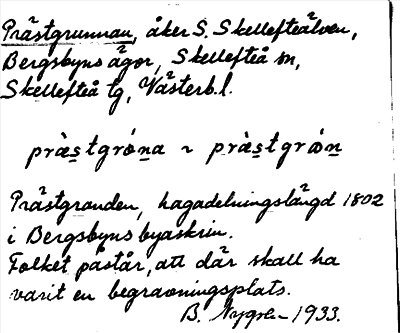 Prästgrunnan, åker S. Skellefteälven,
Bergsbyns ägor, Skellefteå sn,
Skellefteå tg, Västerb. l.
præ̀stgrǿna ~ præ̀stgrǿn
Prästgranden, hagadelningslängd 1802
i Bergsbyns byaskrin.
Folket påstår, att där skall ha
varit en begravningsplats.
B. 1933.